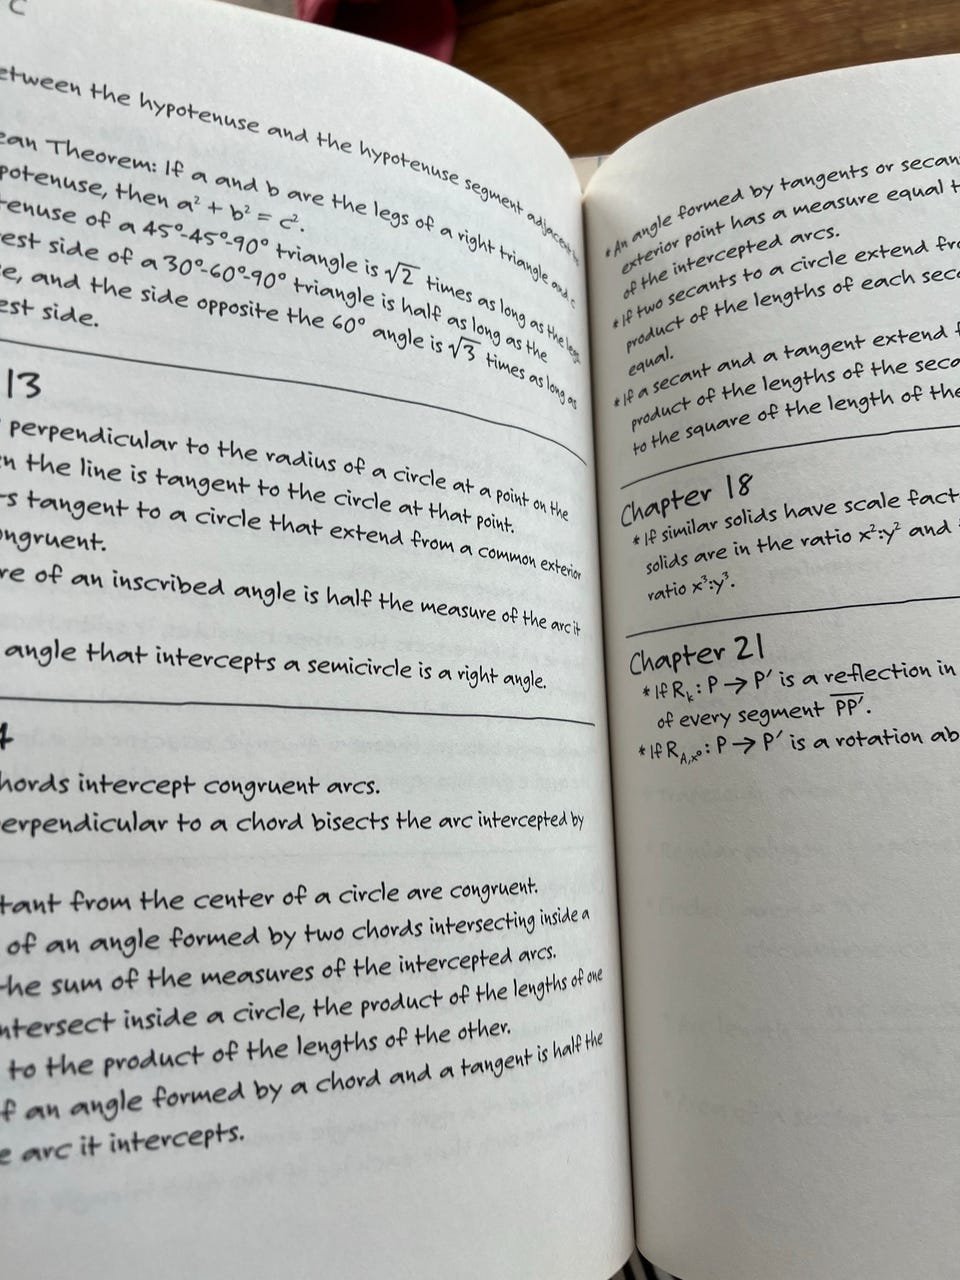 C
etween the hypotenuse and the hypotenuse segment adjacent to
ean Theorem: If a and b are the legs of a right triangle and c
potenuse, then a² + b² = c².
tenuse of a 45°-45°-90° triangle is √2 times as long as the legs
est side of a 30°-60°-90° triangle is half as long as the
e, and the side opposite the 60° angle is √3 times as long as
est side.
13
perpendicular to the radius of a circle at a point on the
n the line is tangent to the circle at that point.
s tangent to a circle that extend from a common exterior
ongruent.
re of an inscribed angle is half the measure of the arc it
angle that intercepts a semicircle is a right angle.
4
hords intercept congruent arcs.
erpendicular to a chord bisects the arc intercepted by
tant from the center of a circle are congruent.
of an angle formed by two chords intersecting inside a
he sum of the measures of the intercepted arcs.
ntersect inside a circle, the product of the lengths of one
to the product of the lengths of the other.
f an angle formed by a chord and a tangent is half the
e arc it intercepts.
*An angle formed by tangents or secan
exterior point has a measure equal t
of the intercepted arcs.
*If two secants to a circle extend fr
product of the lengths of each sec
equal.
*If a secant and a tangent extend f
product of the lengths of the seca
to the square of the length of the
Chapter 18
*If similar solids have scale fact
solids are in the ratio x²:y² and
ratio x³:y³.
Chapter 21
*If Rₖ: P → P′ is a reflection in
of every segment P̅P̅′.
*If R_A,x°: P → P′ is a rotation ab